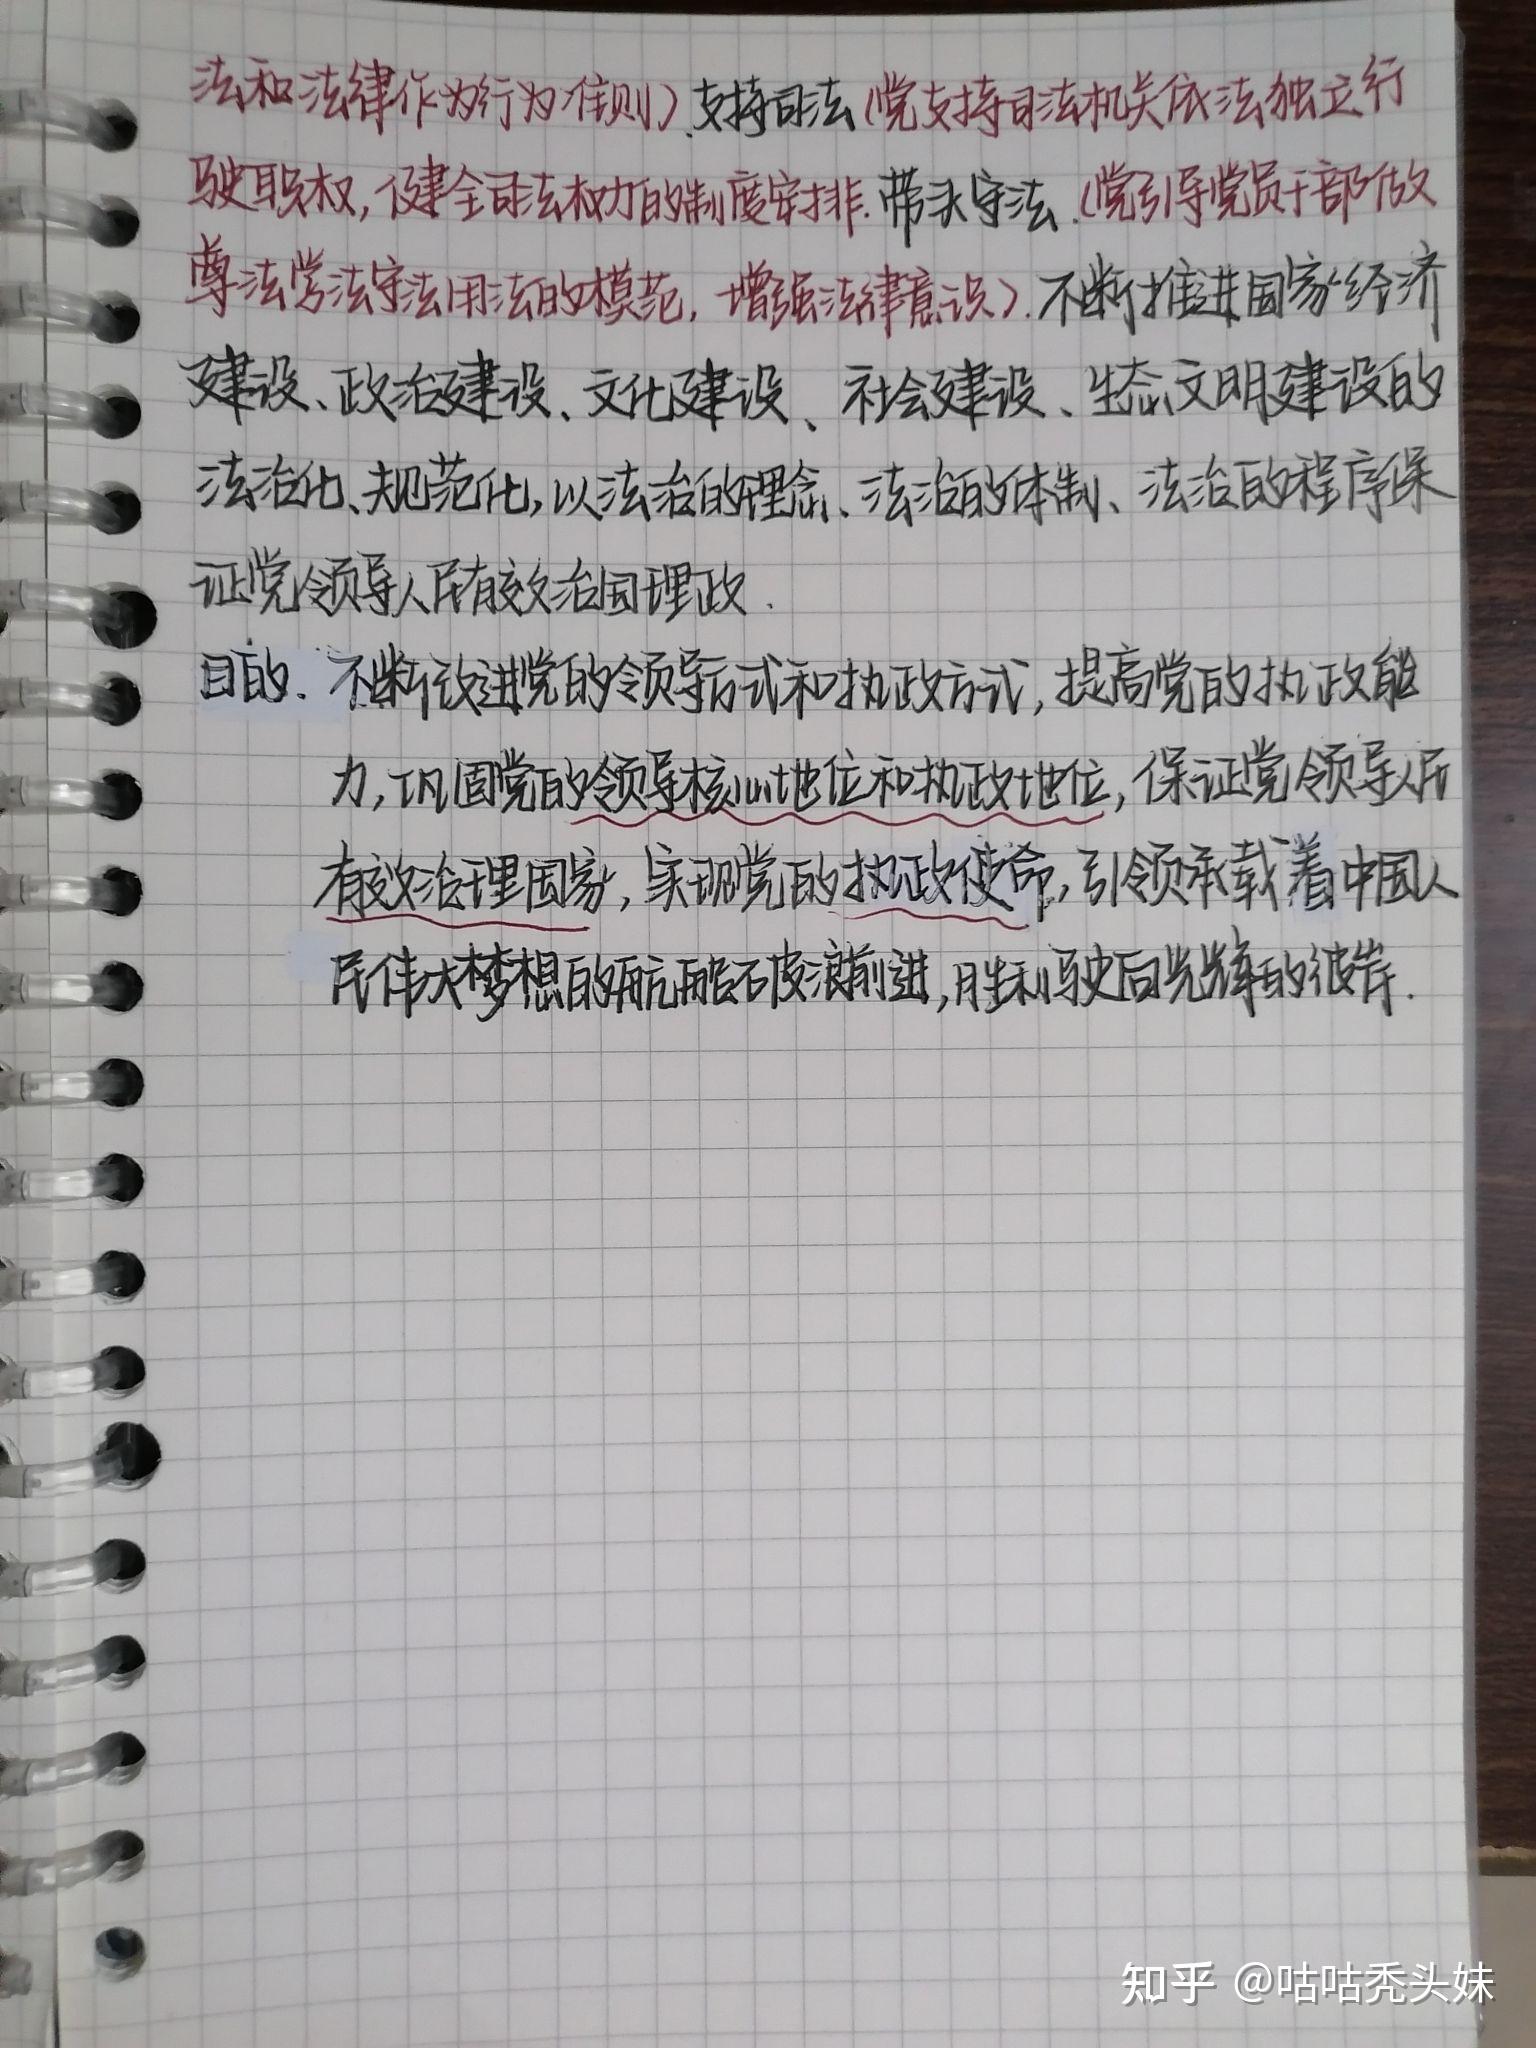 法和法律作为行为准则）.支持司法（党支持司法机关依法独立行
驶职权，健全司法权力的制度安排.带头守法.（党引导党员干部做
尊法学法守法用法的模范，增强法律意识）.不断推进国家经济
建设、政治建设、文化建设、社会建设、生态文明建设的
法治化、规范化，以法治的理念、法治的体制、法治的程序保
证党领导人民有效治国理政.
目的.不断改进党的领导方式和执政方式，提高党的执政能
力，巩固党的领导核心地位和执政地位，保证党领导人民
有效治理国家，实现党的执政使命，引领承载着中国人
民伟大梦想的航船破浪前进，胜利驶向光辉的彼岸.
知乎 @咕咕秃头妹